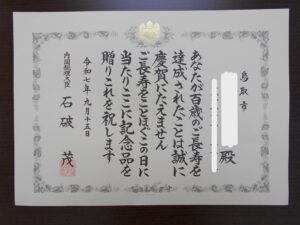 鳥取市
殿
あなたが百歳のご長寿を
達成されたことは誠に
慶賀にたえません
ご長寿をことほぐこの日に
当たりここに記念品を
贈りこれを祝します
令和七年九月十五日
内閣総理大臣 石破 茂